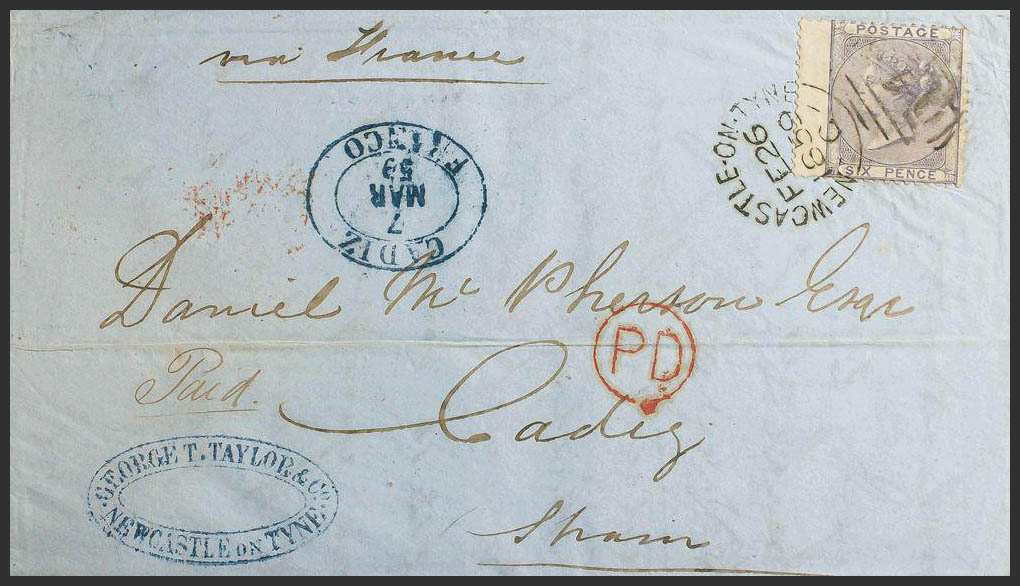 via France
POSTAGE
SIX PENCE
NEWCASTLE-ON-TYNE
FE 26
CADIZ
7
MAR
59
FRANCO
Daniel Mc Pherson Esqr
PD
Paid.
Cadiz
GEORGE T. TAYLOR & Co.
NEWCASTLE ON TYNE
Spain